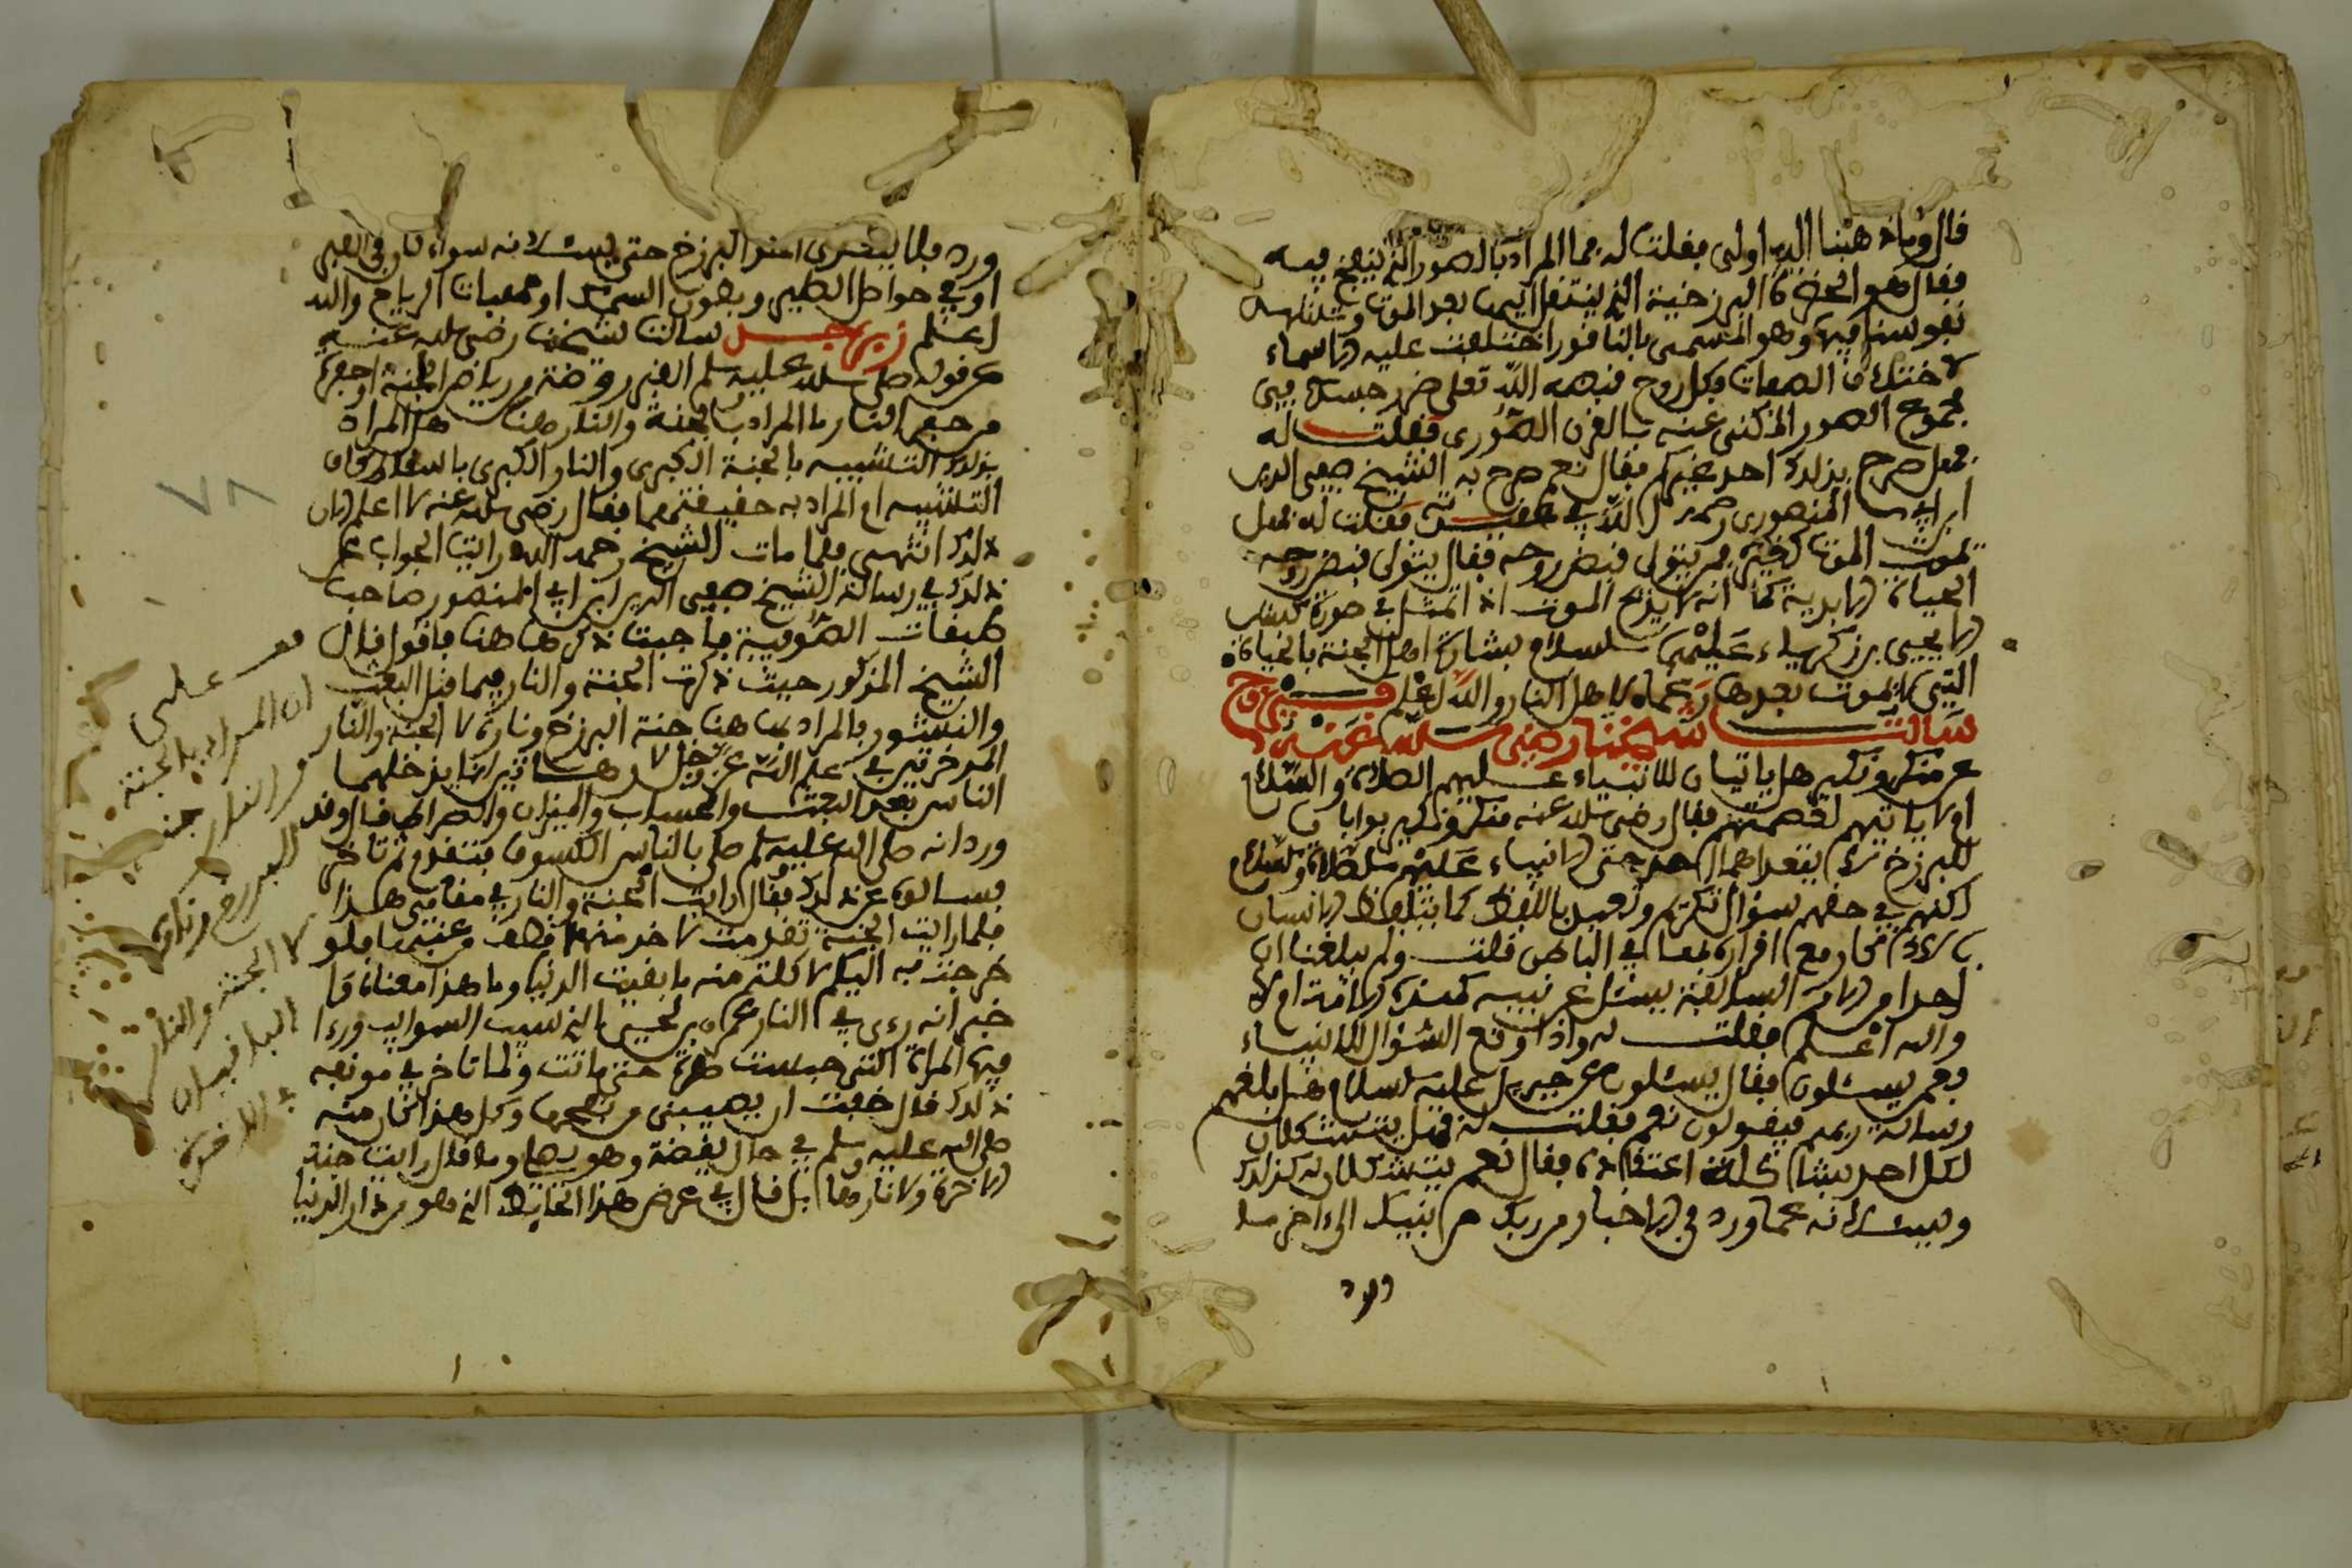 قال وما ذهبنا اليه اولى فقلت له فما المراد بالصور الذي ينفخ فيه
فقال هو الحضرة البرزخية التي ينتقل اليها بعد الموت وتشهد
نفوسنا فيها وهو المسمى بالناقور اختلفت عليه الاسماء
لاختلاف الصفات فكل روح قبضه الله تعلى من جسده في
مجموع الصور المكنى عنه بالقرن الصوري فقلت له
فهل صرح بذلك احد غيركم فقال نعم صرح به الشيخ صفي الدين
ابن ابي المنصوري رحمه الله في فقلت له فهل
يموت الموت كغيره فمن يتولى قبض روحه فقال يتولى قبض روحه
الحياة الابدية كما انه لا يذبح الموت اذا اتمثل في صورة كبش
الا يحيى بن زكرياء عليهما السلام بشارة اهل الجنة بالحياة
التي لا موت بعدها لاهل النار والله اعلم
سالت شيخنا رضي الله عنه
عن منكر ونكير هل ياتيان للانبياء عليهم الصلاة والسلام
او لا ياتيهم لعصمتهم فقال رضي الله عنه منكر ونكير بوابا
للبرزخ لا يتعداهما احد حتى الانبياء عليهم الصلاة والسلام
لكنهم في حقهم سؤال تكريم باللفظ كما يتلفظ الانسان
مع اقراره بمعنا في الباطن قلت ولم يبلغنا ان
احدا من الامم السابقة يسئل عن نبيه كهذه الامة ام لا
والله اعلم فقلت له واذا وقع السؤال للانبياء
فعم يسئلون فقال يسئلون عن جبريل عليه السلام هل بلغهم
رسالة ربهم فيقولون نعم فقلت له فهل يتشكلان
لكل احد بشاكلة اعتقاده فقال نعم يتشكلان له كذلك
ويسئلانه عما ورد في الاخبار من ربك من نبيك الى اخر ما
ورد
ورد فلا يتعدى احد البرزخ حتى يسئلانه سواء كان في القبر
او في حواصل الطير وبطون السمك او مهبات الرياح والله
اعلم زبرجد سالت شيخنا رضي الله عنه
عن قوله صلى الله عليه وسلم القبر روضة من رياض الجنة او حفرة
من حفر النار ما المراد بالجنة والنار هنا هل المراد
بذلك التشبيه بالجنة الكبرى والنار الكبرى باسقاط كاف
التشبيه ام المراد به حقيقتهما فقال رضي الله عنه لا اعلم الان
ذلك انتهى فلما مات الشيخ رحمه الله رايت الجواب عن
ذلك في رسالة الشيخ صفي الدين ابن ابي المنصور صاحب
طبقات الصوفية فاحببت ذكرها هنا فاقول قال
الشيخ المذكور حيث ذكرت الجنة والنار فيما قبل البعث
والنشور فالمراد بها هنا جنة البرزخ وناره لا الجنة والنار
المدخرتين في علم الله عز وجل
الناس بعد البعث والحساب والميزان والصراط قال وقد
ورد انه صلى الله عليه وسلم صلى بالناس الكسوف فتقدم ثم تاخر
فسالوه عن ذلك فقال رايت الجنة والنار في مقامي هذا
فلما رايت الجنة تقدمت لاخذ منها قطف عنب فلو
خرجت به اليكم لاكلتم منه ما بقيت الدنيا وما هذا معناه وفا
خبر انه رءى في النار عمرو بن لحيي الذي سيب السوايب وراا
فيها المراة التي حبست هرة حتى ماتت ولما تاخر في موقفه
ذلك قال خفت ان يصيبني من لفحها وكل هذا كان منه
صلى الله عليه وسلم في حال يقظة وما قال رايت جنة
الاخرة ولا نارها بل قال في عرض هذا الحايط الذي هو من دار الدنيا
٧٨
فعلى
ان المراد بالجنة
والنار جنة
البرزخ وناره
لا الجنة والنار
الباقيان
الاخرة